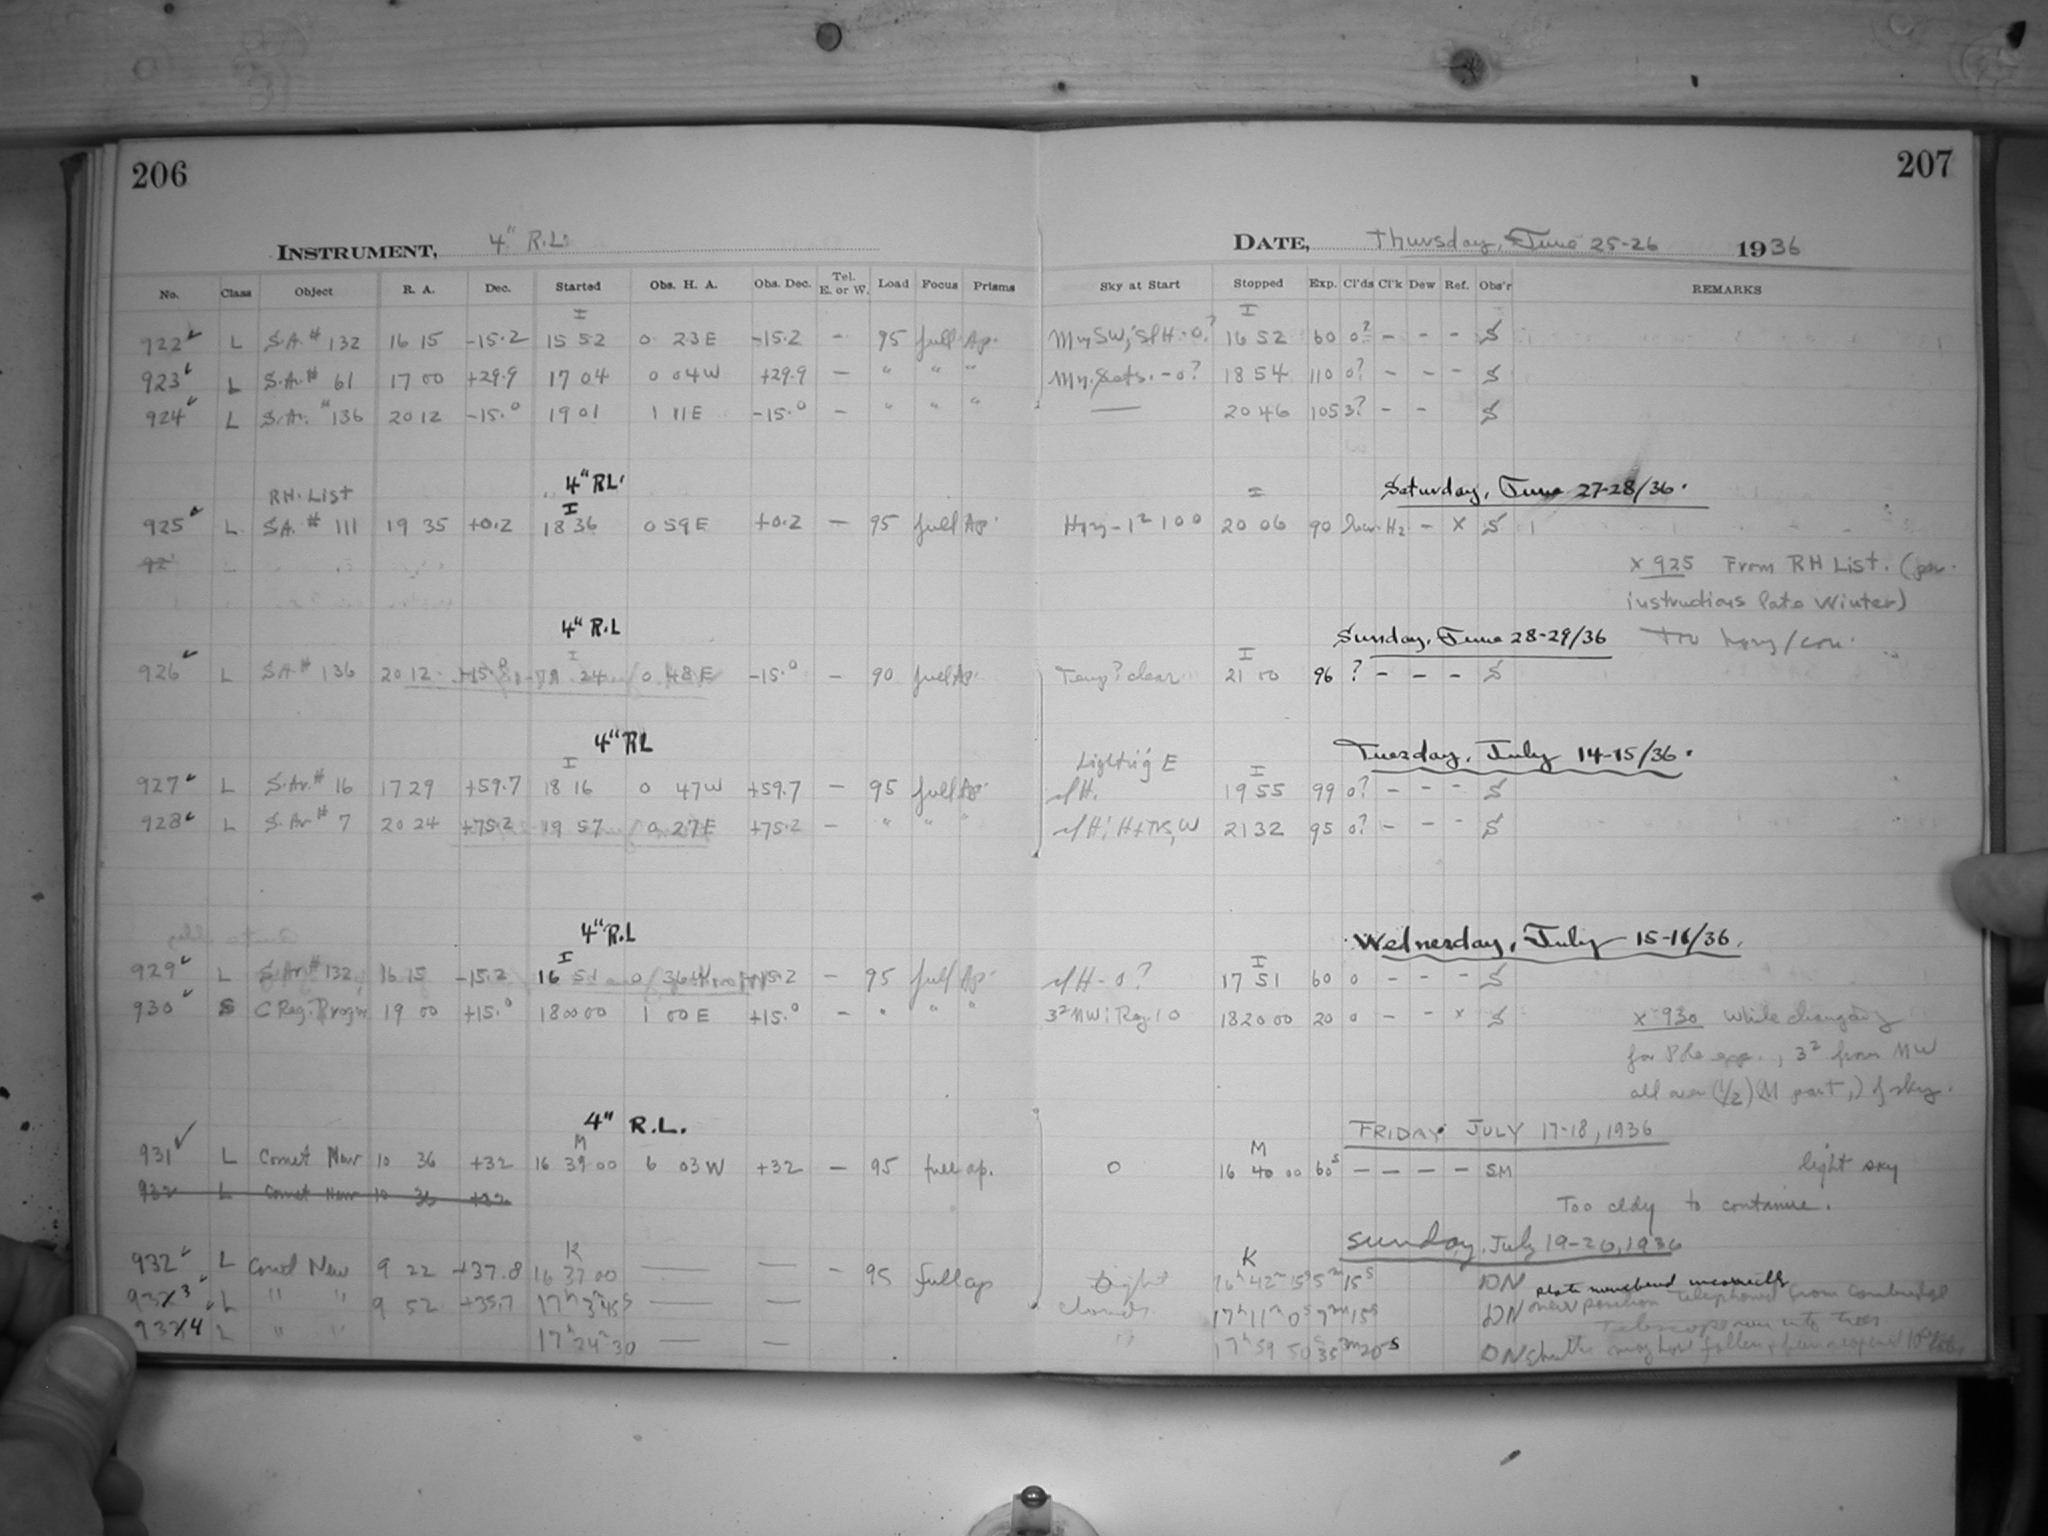 206
207
INSTRUMENT, 4" R.L.
DATE, Thursday, June 25-26 1936
No. Class Object R. A. Dec. Started Obs. H. A. Obs. Dec. Tel. E. or W. Load Focus Prisms Sky at Start Stopped Exp. Cl'ds Cl'k Dew Ref. Obs'r REMARKS
I I
922 L S.A. # 132 16 15 -15.2 15 52 0 23 E -15.2 - 95 full Ap. 16 52 60 0? - - - S
923 L S.Ar. # 61 17 00 +29.9 17 04 0 04 W +29.9 - " " " 18 54 110 0? - - - S
924 L S.Ar. " 136 20 12 -15.0 19 01 1 11 E -15.0 - " " " — 20 46 105 3? - - S
4" RL. Saturday, June 27-28/36.
RH. List I I
925 L S.A. # 111 19 35 +0.2 18 36 0 59 E +0.2 - 95 full Ap. 20 06 90 - X S
X 925 From RH List. (per.
instructions late Winter)
4" R.L Sunday, June 28-29/36
I I
926 L S.A. # 136 20 12 24 0 48 E -15.0 - 90 full Ap. Temp? clear 21 00 96 ? - - - S
4" RL Tuesday, July 14-15/36.
I Lightn'g E I
927 L S.Ar. # 16 17 29 +59.7 18 16 0 47 W +59.7 - 95 full Ap. sl H. 19 55 99 0? - - - S
928 L S.Ar # 7 20 24 +75.2 19 57 0 27 E +75.2 - " " " 21 32 95 0? - - - S
4" R.L Wednesday, July 15-16/36.
I I
929 L S.Ar # 132 16 15 -15.2 16 51 0 36 W -15.2 - 95 full Ap. sl H - 0? 17 51 60 0 - - - S
930 S C Reg. Progm 19 00 +15.0 18 00 00 1 00 E +15.0 - " " " 18 20 00 20 0 - - x S
x 930 While changing
for from NW
all over (1/2) (M part,) of sky.
4" R.L. FRIDAY JULY 17-18, 1936
M M
931 L Comet New 10 36 +32 16 39 00 6 03 W +32 - 95 full ap. 0 16 40 00 60s - - - - SM light sky
932 L Comet New 10 36 +32
Too cldy to continue.
Sunday, July 19-20, 1936
K K
932 L Comet New 9 22 +37.8 16 37 00 — — - 95 full ap bright 16h 42m 15s 5m 15s DN plate numbered incorrectly
933 L " " 9 52 +35.7 17h 3m 45s — — clouds 17h 11m 0s 7m 15s DN new position telephoned from Cambridge
934 L " " 17h 24m 30 — — " 17h 59 50 35m 20s DN